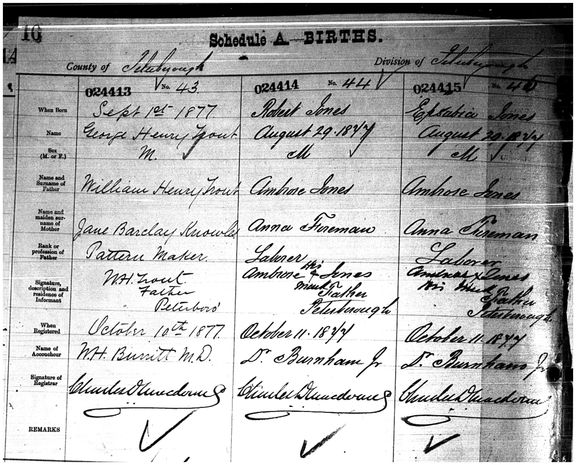 16
Schedule A — BIRTHS.
County of Peterborough
Division of Peterborough
024413 No. 43
024414 No. 44
024415 No.
When Born
Sept 1st 1877.
Robert Jones
Jones
Name
George Henry Trout
August 29. 1877
August 29. 1877
Sex
(M. or F.)
M.
M
M.
Name and
Surname of
Father
William Henry Trout
Ambrose Jones
Ambrose Jones
Name and
maiden sur-
name of
Mother
Jane Barclay Knowles
Anna Fireman
Anna Fireman
Rank or
profession of
Father
Pattern Maker.
Laborer
Laborer
Signature,
description and
residence of
Informant
W.H. Trout
Father
Peterboro
Ambrose his x mark Jones
Father
Peterborough
Ambrose x Jones
his mark
Father
Peterborough
When
Registered
October 10th 1877.
October 11. 1877
October 11. 1877
Name of
Accoucheur
W.H. Burritt M.D.
Dr Burnham Jr
Dr. Burnham Jr
Signature of
Registrar
Charles
Charles
Charles
REMARKS